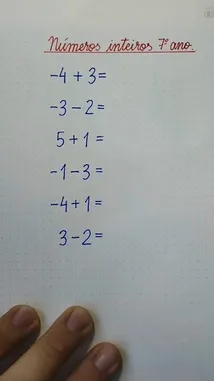 Números inteiros 7º ano.
-4 + 3=
-3 - 2=
5 + 1 =
-1 - 3=
-4 + 1=
3 - 2=